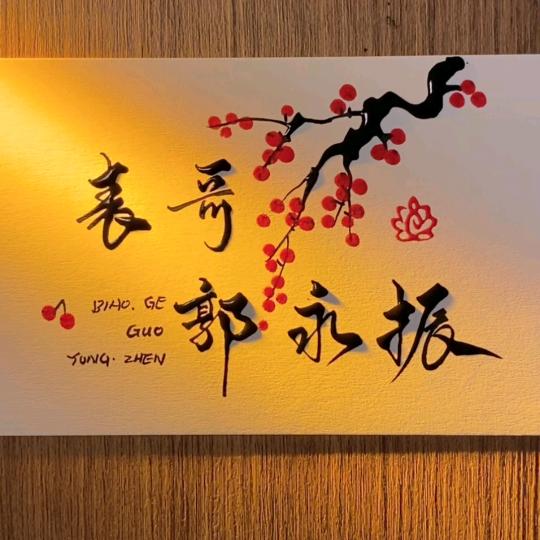 表哥
郭永振
BIAO. GE
GUO
YUNG. ZHEN